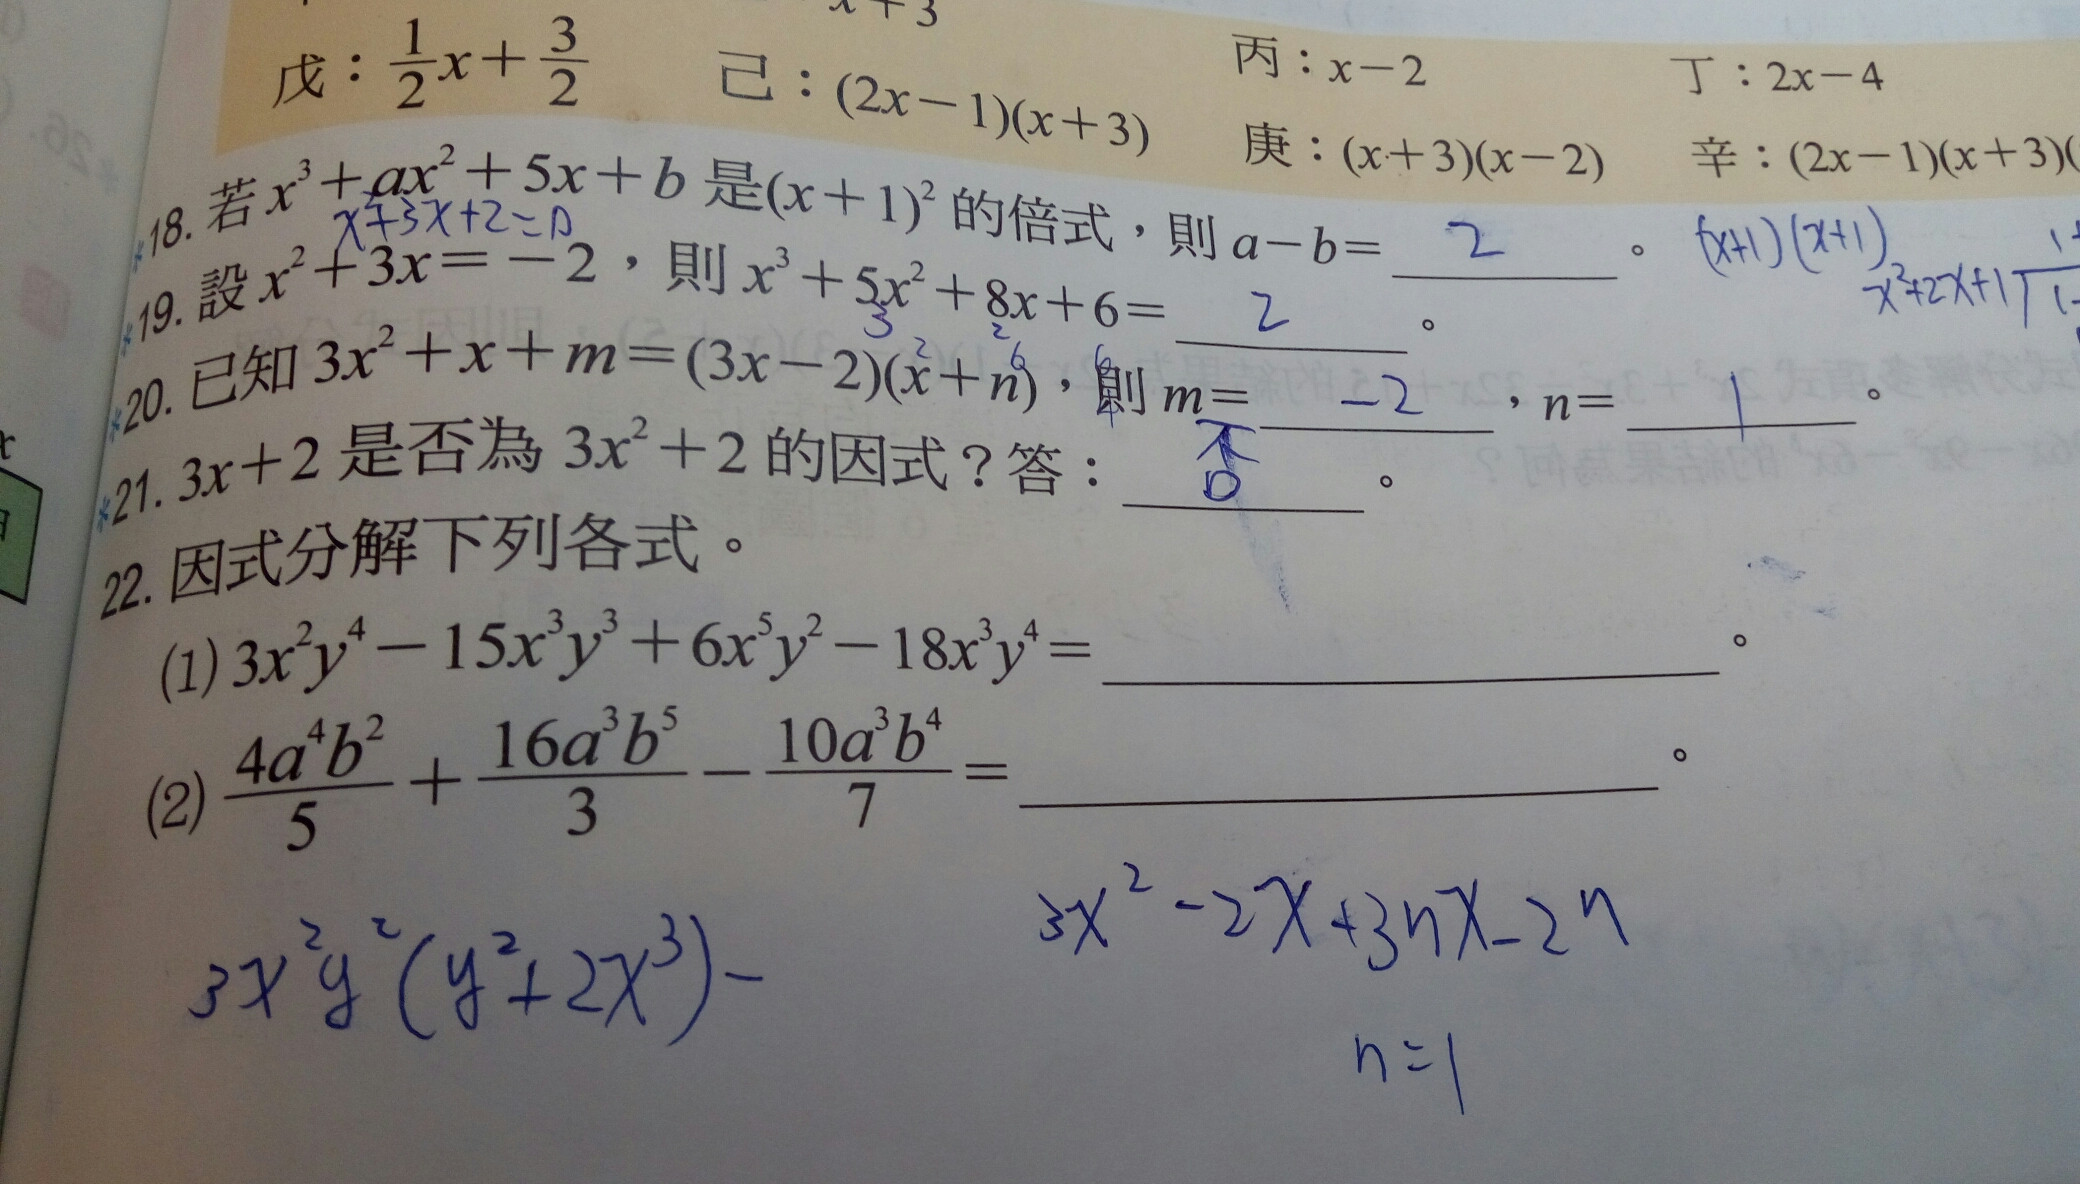 x+3
丙：x－2 丁：2x－4
戊：1/2x＋3/2 己：(2x－1)(x＋3) 庚：(x＋3)(x－2) 辛：(2x－1)(x＋3)(
*18. 若 x³＋ax²＋5x＋b 是(x＋1)² 的倍式，則 a－b＝ 2 。 (x+1)(x+1)
x²+3x+2=0
x²+2x+1
*19. 設 x²＋3x＝－2，則 x³＋5x²＋8x＋6＝ 2 。
3 2
2 6 6
*20. 已知 3x²＋x＋m＝(3x－2)(x＋n)，則 m＝ -2 ，n＝ 1 。
*21. 3x＋2 是否為 3x²＋2 的因式？答： 否 。
22. 因式分解下列各式。
(1) 3x²y⁴－15x³y³＋6x⁵y²－18x³y⁴＝ 。
(2) 4a⁴b²/5＋16a³b⁵/3－10a³b⁴/7＝ 。
3x²-2x+3nx-2n
3x²y²(y²+2x³)-
n=1
*26.